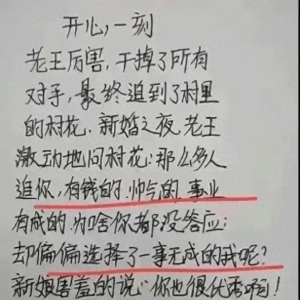 开心,一刻
老王厉害,干掉了所有
对手,最终追到了村里
的村花。新婚之夜,老王
激动地问村花:那么多人
追你,有钱的.帅气的.事业
有成的.为啥你都没答应:
却偏偏选择了一事无成的我呢?
新娘害羞的说:"你也很优秀啊!